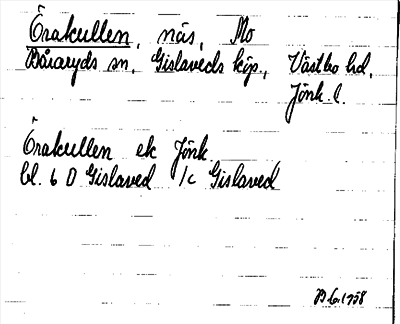 Örakullen, näs, Mo
Båraryds sn, Gislaveds köp., Västbo hd,
Jönk. l.
Örakullen ek Jönk
bl. 6 D Gislaved 1c Gislaved